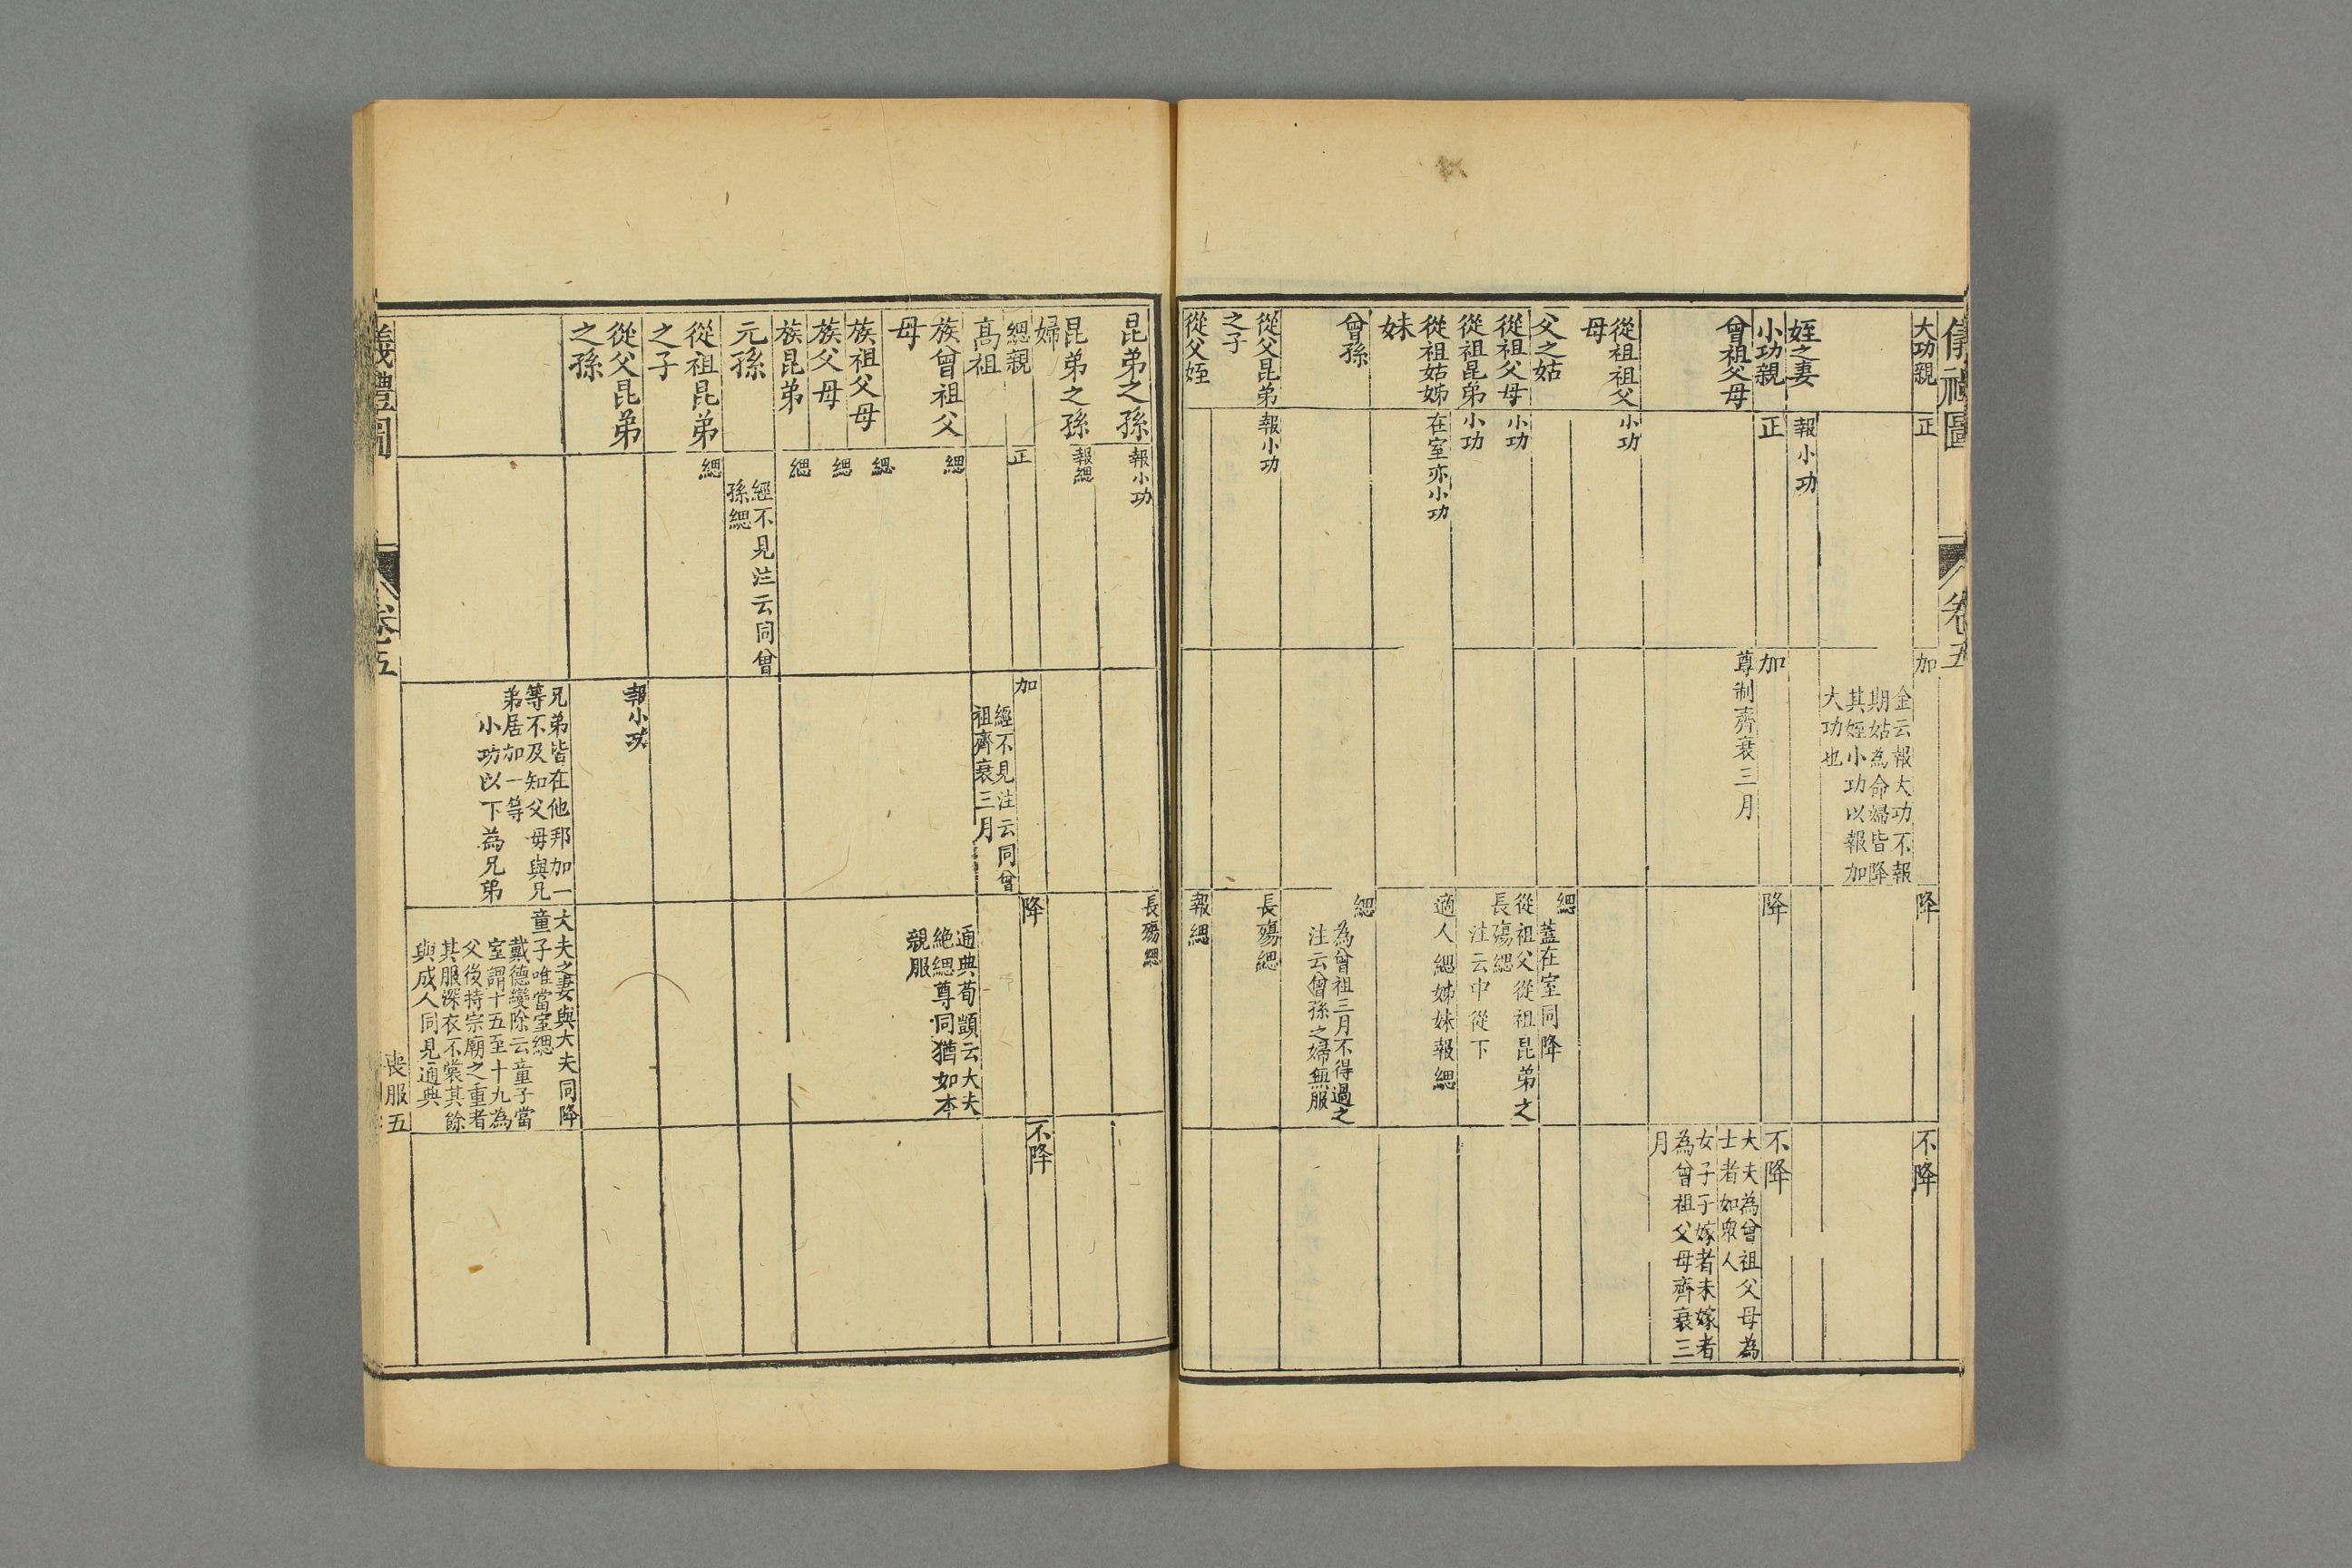 儀禮圖
卷五
大功親
正
加
降
不降
姪之妻
報小功
金云報大功不報
期姑為命婦皆降
其姪小功以報加
大功也
小功親
正
加
降
不降
曾祖父母
尊制齊衰三月
大夫為曾祖父母為
士者如眾人
女子子嫁者未嫁者
為曾祖父母齊衰三
月
從祖祖父
母
小功
父之姑
緦
蓋在室同降
從祖父母
小功
從祖父從祖昆弟之
長殤緦
注云中從下
從祖昆弟
小功
從祖姑姊
妹
在室亦小功
適人緦姊妹報緦
曾孫
緦
為曾祖三月不得過之
注云曾孫之婦無服
從父昆弟
之子
報小功
長殤緦
從父姪
報緦
昆弟之孫
報小功
長殤緦
昆弟之孫
婦
報緦
緦親
正
加
降
不降
高祖
經不見注云同曾
祖齊衰三月
族曾祖父
母
緦
通典荀顗云大夫
絶緦尊同猶如本
親服
族祖父母
緦
族父母
緦
族昆弟
緦
元孫
經不見注云同曾
孫緦
從祖昆弟
之子
緦
從父昆弟
之孫
報小功
兄弟皆在他邦加一
等不及知父母與兄
弟居加一等
小功以下為兄弟
大夫之妻與大夫同降
童子唯當室緦
戴德變除云童子當
室謂十五至十九為
父後持宗廟之重者
其服深衣不裳其餘
與成人同見通典
儀禮圖
卷五
喪服五